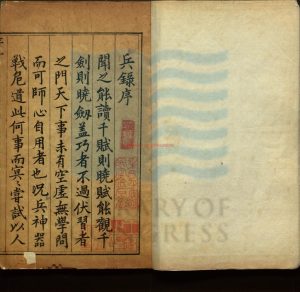 兵錄序
聞之能讀千賦則曉賦能觀千
劍則曉劔蓋巧者不過伏習者
之門天下事未有空虛無學問
而可師心自用者也况兵神器
戰危道此何事而冥〻嘗試以人
RY OF
GRESS